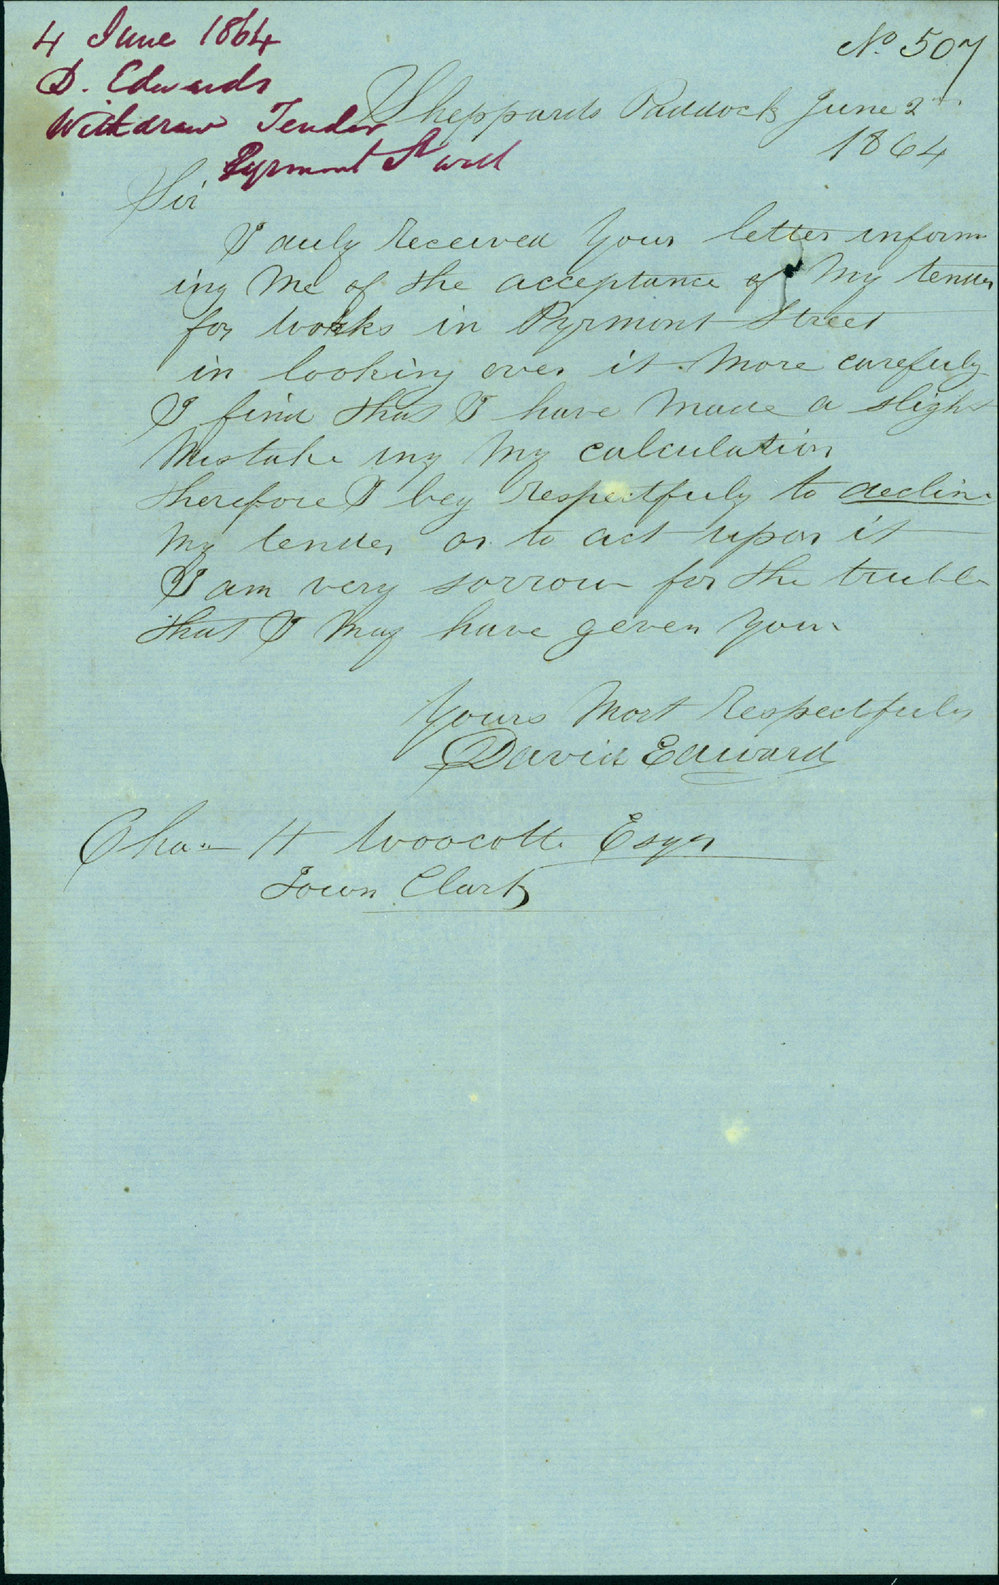 4 June 1864
D. Edwards
Withdraw Tender
Pyrmont St wall
No. 507
Sheppards Paddock June 2nd
1864
Sir
I duly Received Your letter inform
ing Me of the acceptance of My tender
for works in Pyrmont Street
in looking over it More carefuly
I find that I have Made a slight
Mistake ing My calculation
therefore I beg Respectfuly to decline
My tender or to act upon it
I am very sorrow for the truble
that I May have geven You
Yours Most Respectfuly
David Edward
Chas H Woocott Esqr
Town Clark